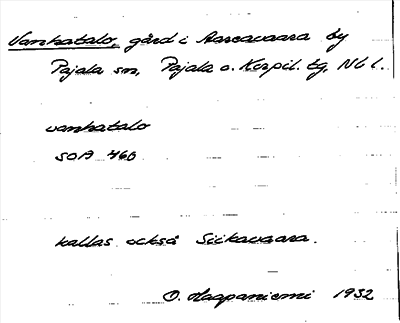 Vanhatalo, gård i Aareavaara by
Pajala sn, Pajala o. Korpil. tg, Nbl.
vanhatalo
SOA 460
kallas också Siikavaara.
O. Haapaniemi 1932